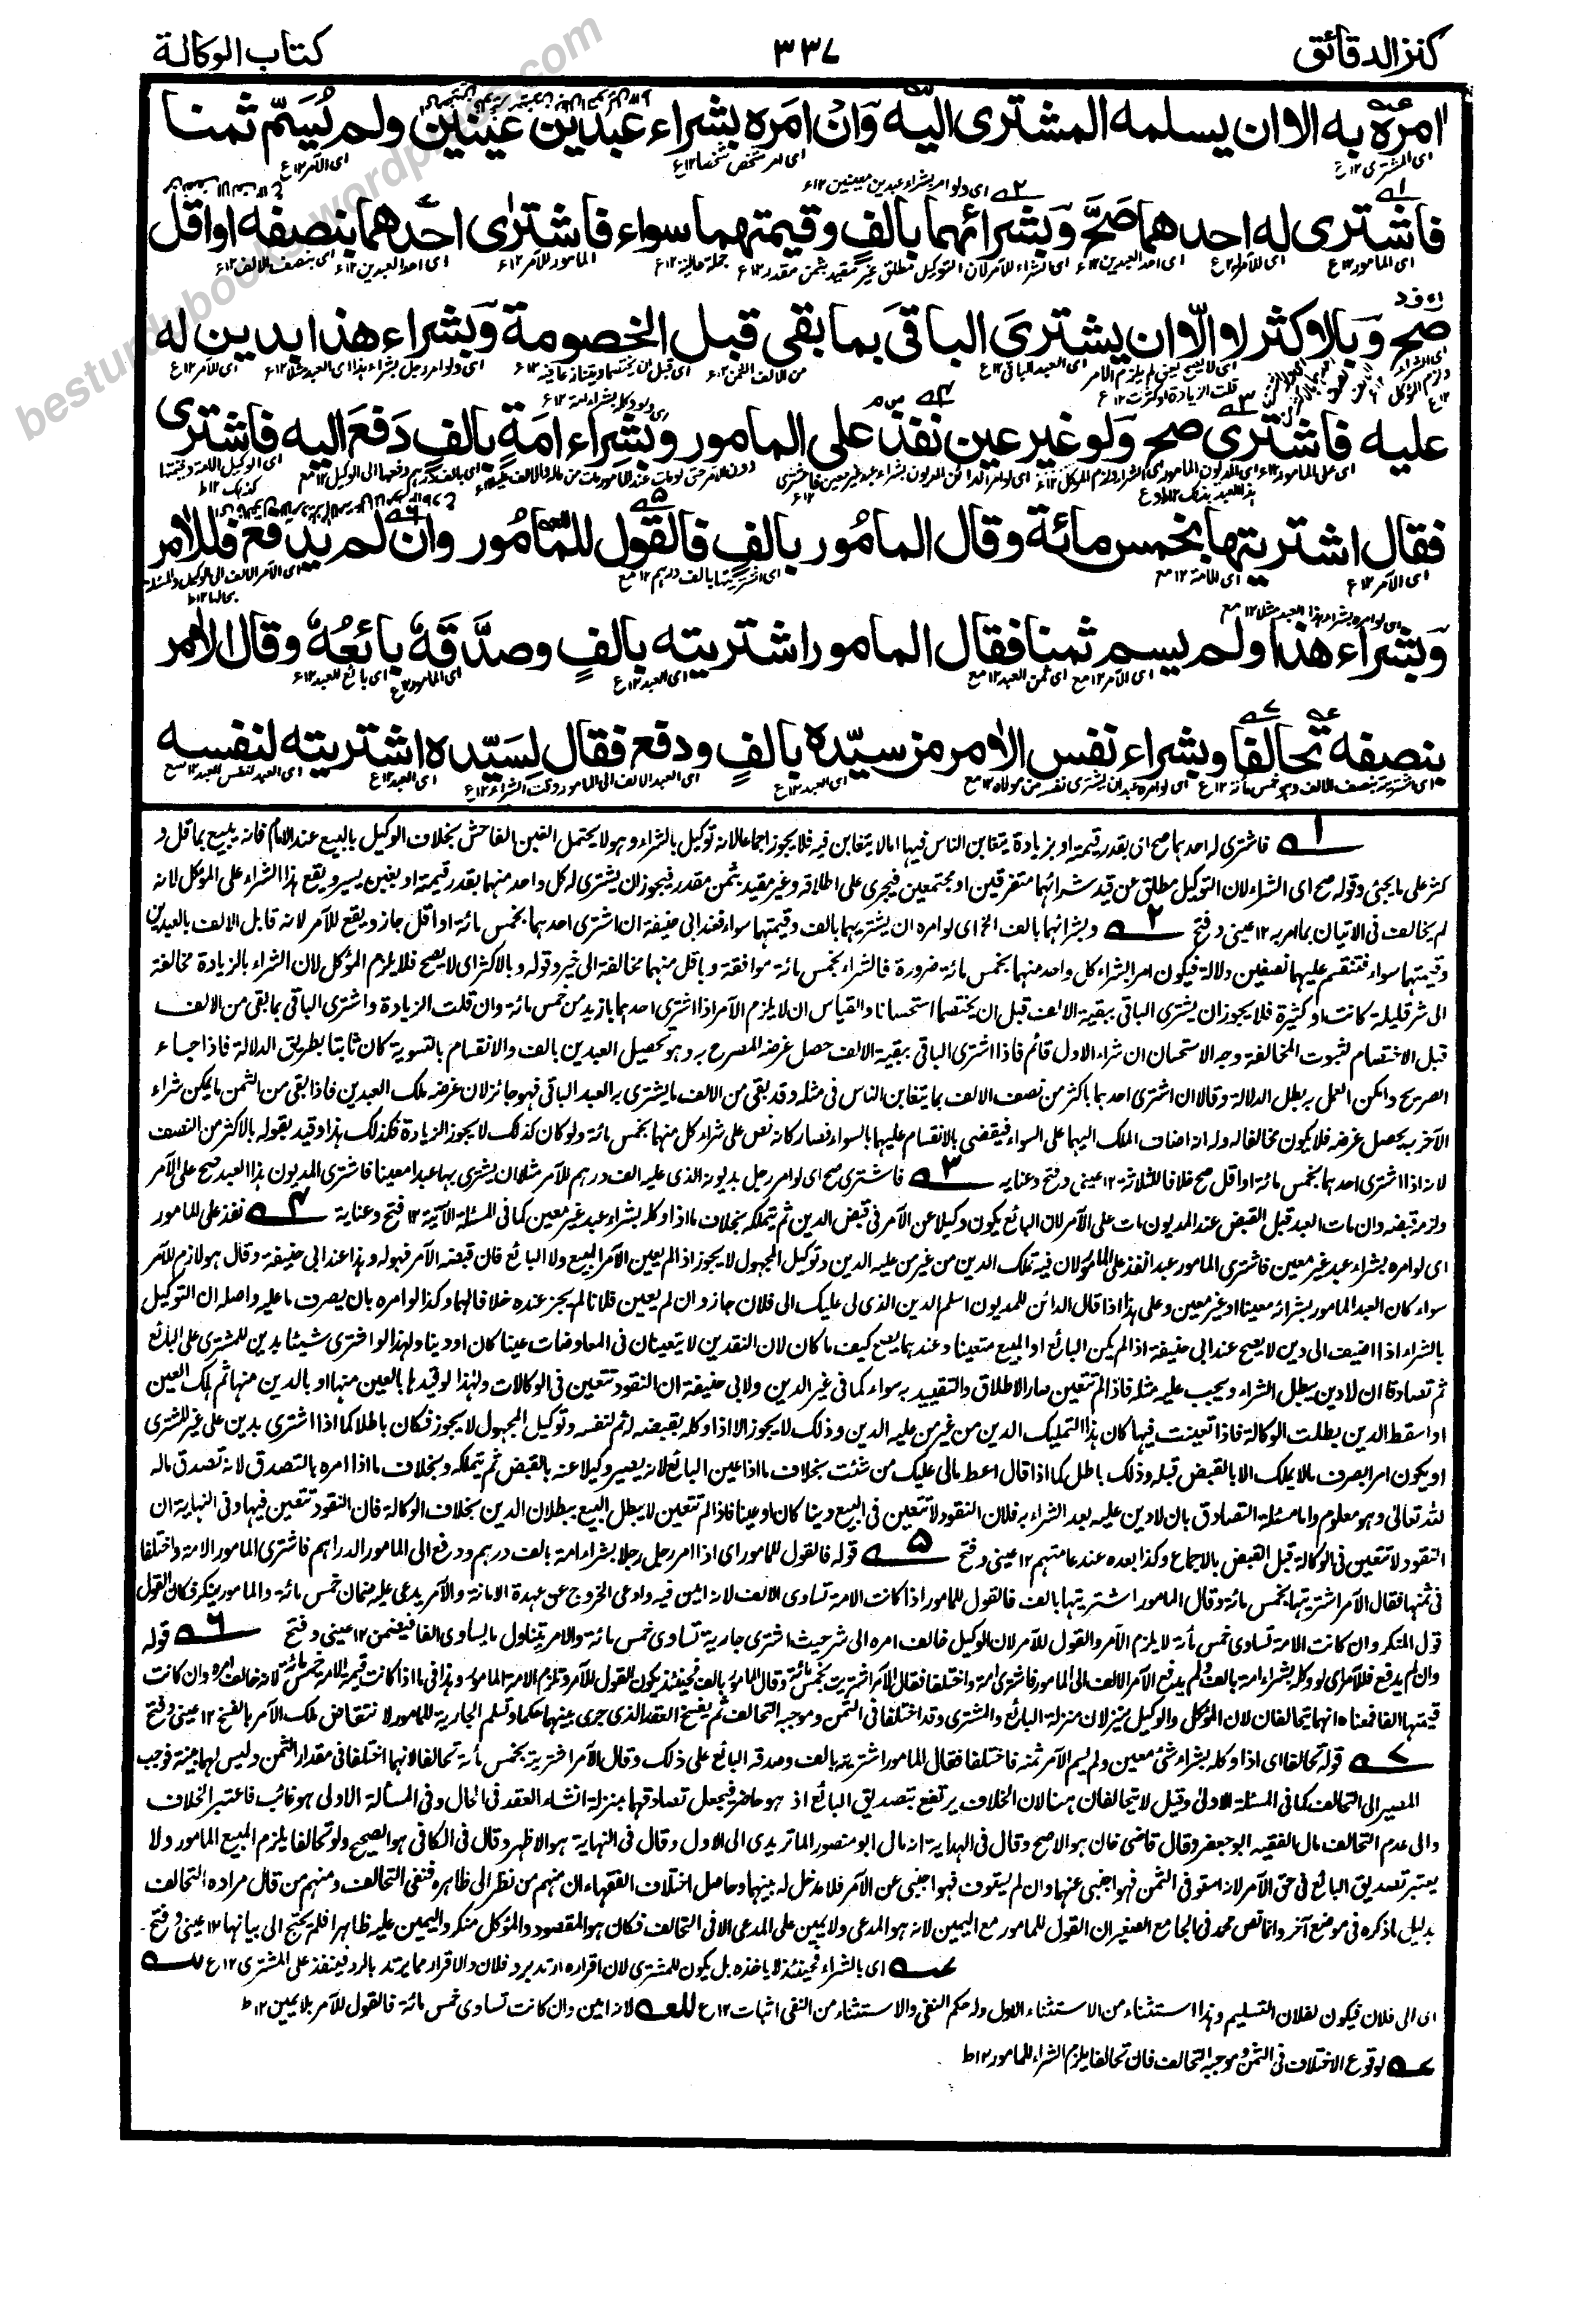 كنز الدقائق
٣٣٧
كتاب الوكالة
امره به الا ان يسلمه المشترى اليه وان امره بشراء عبدين عينين ولم يسم ثمنا
اى المشترى ١٢ع
اى الآمر ١٢ع
٢ اى ولو امر بشراء عبدين معينين ١٢ع
فاشترى له احدهما صَحَّ وَبشرائهما بالفٍ وقيمتهما سواء فاشترى احدهما بنصفه او اقل
اى المامور ١٢ع
اى للآمر ١٢ع
اى احد العبدين ١٢ع
اى الشراء للآمر لان التوكيل مطلق غير مقيد بثمن مقدر ١٢ع
جملة حالية ١٢ع
المامور للآمر ١٢ع
اى احد العبدين ١٢ع
اى بنصف الالف ١٢ع
صح وَبالاوكثر لا والّا وان يشترىَ الباقىَ بما بقى قبل الخصومة وَبشراء هذا بدين له
اى العبد الباقى ١٢ع
من الالف الثمن ١٢ع
اى للآمر ١٢ع
عليه فاشترى صح وَلو غير عين نفذ على المامور وَبشراء امَةٍ بالفٍ دَفعَ اليه فاشترى
اى على المامور ١٢ع
فقال اشتريتها بخمس مائة وقال المامُور بالفٍ فالقول للمَامُور وان لم يدفع فللاٰمر
اى الآمر ١٢ع
اى الامة ١٢مع
اى اشتريتها بالف درهم ١٢مع
اى لو امره بشراء هذا العبد مثلا ١٢مع
وَبشراء هذا ولم يسم ثمنا فقال المامور اشتريته بالفٍ وصدَّقَهٗ بائعُهٗ وقال الاٰمر
اى الآمر ١٢مع
اى ثمن العبد ١٢مع
اى العبد ١٢ع
اى المامور ١٢ع
اى بائع العبد ١٢ع
بنصفه تحالفا وبشراء نفس الاٰمر من سيّده بالفٍ ودفع فقال لِسَيّده اشتريته لنفسه
اى اشتريته بنصف الالف وهو خمس مائة ١٢ع
اى لو امره عبد ان يشترى نفسه من مولاه ١٢مع
اى العبد ١٢ع
اى العبد الالف الى المامور وقت الشراء ١٢ع
اى العبد ١٢ع
اى العبد لنفس العبد ١٢مع
١ فاشترى له احدهما صح اى بقدر قيمته او بزيادة يتغابن الناس فيها اما لا يتغابن فيه فلا يجوز اجماعا لانه توكيل بالشراء وهو لا يحتمل الغبن الفاحش بخلاف الوكيل بالبيع عند الامام فانه يبيع بما قل و
كثر على ما يجئى وقوله صح اى الشراء لان التوكيل مطلق عن قيد شرائهما متفرقين او مجتمعين فيجرى على اطلاقه وغير مقيد بثمن مقدر فيجوز ان يشترى له كل واحد منهما بقدر قيمته او بغبن يسير ويقع هذا الشراء على المؤكل لانه
لم يخالف فى الاتيان بما امر به ١٢ عينى وفتح ٢ وبشرائهما بالف الخ اى لو امره ان يشتريهما بالف وقيمتهما سواء فعند ابى حنيفة ان اشترى احدهما بخمس مائة او اقل جاز ويقع للآمر لانه قابل الالف بالعبدين
وقيمتهما سواء فتنقسم عليهما نصفين دلالة فيكون امر بشراء كل واحد منهما بخمس مائة ضرورة فالشراء بخمس مائة موافقة وباقل منهما مخالفة الى خير وقوله وبالاكثر اى لا يصح فلا يلزم المؤكل لان الشراء بالزيادة مخالفة
الى شر قليلة كانت او كثيرة فلا يجوز ان يشترى الباقى ببقية الالف قبل ان يختصما استحسانا والقياس ان لا يلزم الآمر اذا اشترى احدهما بازيد من خمس مائة وان قلت الزيادة واشترى الباقى بما بقى من الالف
قبل الاختصام لثبوت المخالفة وجه الاستحسان ان شراء الاول قائم فاذا اشترى الباقى ببقية الالف حصل غرضه المصرح به وهو تحصيل العبدين بالف والانقسام بالتسوية كان ثابتا بطريق الدلالة فاذا جاء
الصريح وامكن العمل به بطل الدلالة وقالا ان اشترى احدهما باكثر من نصف الالف بما يتغابن الناس فى مثله وقد بقى من الالف ما يشترى به العبد الباقى فهو جائز لان غرضه ملك العبدين فاذا بقى من الثمن ما يمكن شراء
الآخر به يحصل غرضه فلا يكون مخالفا له وله انه اضاف الملك اليهما على السواء فيقضى بالانقسام عليهما بالسواء فصار كانه نص على شراء كل منهما بخمس مائة ولو كان كذلك لا يجوز الزيادة فكذلك هذا وقيد بقوله بالاكثر من النصف
لانه اذا اشترى احدهما بخمس مائة او اقل صح خلافا للثلاثة ١٢ عينى وفتح وعنايه ٣ فاشترى صح اى لو امر رجل مديونه الذى عليه الف درهم للآمر مثلا ان يشترى بها عبدا معينا فاشترى المديون هذا العبد صح على الآمر
ولزم قبضه وان مات العبد قبل القبض عند المديون مات على الآمر لان البائع يكون وكيلا عن الآمر فى قبض الدين ثم يتملكه بخلاف ما اذا وكله بشراء عبد غير معين كما فى المسئلة الآتية ١٢ فتح وعناية ٤ نفذ على المامور
اى لو امره بشراء عبد غير معين فاشترى المامور عبدا نفذ على المامور لان فيه تملك الدين من غير من عليه الدين وتوكيل المجهول لا يجوز اذ لم يعين الآمر المبيع ولا البائع فان قبضه الآمر فهو له وهذا عند ابى حنيفة وقالا هو لازم للآمر
سواء كان العبد المامور بشرائه معينا او غير معين وعلى هذا اذا قال الدائن للمديون اسلم الدين الذى لى عليك الى فلان جاز وان لم يعين فلانا لم يجز عنده خلافا لهما وكذا لو امره بان يصرف ما عليه واصله ان التوكيل
بالشراء اذا اضيف الى دين لا يصح عند ابى حنيفة اذا لم يكن البائع او المبيع متعينا وعندهما يصح كيف ما كان لان النقدين لا يتعينان فى المعاوضات عينا كان او دينا ولهذا لو اشترى شيئا بدين للمشترى على البائع
ثم تصادقا ان لا دين يبطل الشراء ويجب عليه مثله فاذا لم تتعين صار الاطلاق والتقييد به سواء كما فى غير الدين ولابى حنيفة ان النقود تتعين فى الوكالات ولهذا لو قيدها بالعين منها او بالدين منها ثم هلك العين
او اسقط الدين بطلت الوكالة فاذا تعينت فيها كان هذا التمليك الدين من غير من عليه الدين وذلك لا يجوز الا اذا وكله بقبضه له ثم لنفسه وتوكيل المجهول لا يجوز فكان باطلا كما اذا اشترى بدين على غير المشترى
او يكون امر ابصرف ما لا يملك الا بالقبض قبله وذلك باطل كما اذا قال اعط مالى عليك من شئت بخلاف ما اذا عين البائع لانه يصير وكيلا عنه بالقبض ثم يتملكه وبخلاف ما اذا امره بالتصدق لانه تصدق ماله
لله تعالى وهو معلوم واما مسئلة التصادق بان لا دين عليه بعد الشراء به فلان النقود لا تتعين فى البيع دينا كان او عينا فاذا لم تتعين لا يبطل البيع ببطلان الدين بخلاف الوكالة فان النقود تتعين فيها وفى النهاية ان
النقود لا تتعين فى الوكالة قبل القبض بالاجماع وكذا بعده عند عامتهم ١٢ عينى وفتح ٥ قوله فالقول للمامور اى اذا امر رجل رجلا بشراء امة بالف درهم ودفع الى المامور الدراهم فاشترى المامور الامة واختلفا
فى ثمنها فقال الآمر اشتريتها بخمس مائة وقال المامور اشتريتها بالف فالقول للمامور اذا كانت الامة تساوى الالف لانه امين فيه وادعى الخروج عن عهدة الامانة والآمر يدعى عليه ضمان خمس مائة والمامور ينكر فكان القول
قول المنكر وان كانت الامة تساوى خمس مأة لا يلزم الآمر والقول للآمر لان الوكيل خالف امره الى شر حيث اشترى جارية تساوى خمس مائة والامر يتناول ما يساوى الفا فيضمن ١٢ عينى وفتح ٦ قوله
وان لم يدفع فللآمر اى لو وكله بشراء امة بالف ولم يدفع الآمر الالف الى المامور فاشترى امة واختلفا فقال الآمر اشتريت بخمس مائة وقال المامور بالف فحينئذ يكون القول للآمر وتلزم الامة المامور وهذا فى ما اذا كانت قيمة الامة خمس مائة لانه خالف امره وان كانت
قيمتها الفا فمعناه انهما يتحالفان لان المؤكل والوكيل ينزلان منزلة البائع والمشترى وقد اختلفا فى الثمن وموجبه التحالف ثم يفسخ العقد الذى جرى بينهما حكما وتسلم الجارية للمامور لانتقاض ملك الآمر بالفسخ ١٢ عينى وفتح
٧ قوله تحالفا اى اذا وكله بشراء شئ معين ولم يسم الآمر ثمنه فاختلفا فقال المامور اشتريته بالف وصدقه البائع على ذلك وقال الآمر اشتريته بخمس مأة تحالفا لانهما اختلفا فى مقدار الثمن وليس لهما بينة فوجب
المصير الى التحالف كما فى المسئلة الاولى وقيل لا يتحالفان هنا لان الخلاف يرتفع بتصديق البائع اذ هو حاضر فيجعل تصادقهما بمنزلة انشاء العقد فى الحال وفى المسألة الاولى هو غائب فاعتبر الخلاف
والى عدم التحالف مال الفقيه ابو جعفر وقال قاضى خان هو الاصح وقال فى الهداية انه مال ابو منصور الماتريدى الى الاول وقال فى النهاية هو الاظهر وقال فى الكافى هو الصحيح ولو تحالفا يلزم المبيع المامور ولا
يعتبر تصديق البائع فى حق الآمر لانه استوفى الثمن فهو اجنبى عنهما وان لم يستوف فهو اجنبى عن الآمر فلا مدخل له بينهما وحاصل اختلاف الفقهاء ان منهم من نظر الى ظاهره فنفى التحالف ومنهم من قال مراده التحالف
بدليل ما ذكره فى موضع آخر وانما نص محمد فى الجامع الصغير ان القول للمامور مع اليمين لانه هو المدعى ولا يمين على المدعى الا فى التحالف فكان هو المقصود والمؤكل منكر واليمين عليه ظاهرا فلم يحتج الى بيانها ١٢ عينى وفتح
عـه اى بالشراء فحينئذ لا ياخذه بل يكون للمشترى لان اقراره ارتد برد فلان والاقرار مما يرتد بالرد فينفذ على المشترى ١٢ع
اى الى فلان فيكون لفلان التسليم وهذا استثناء من الاستثناء الاول وله حكم النفى والاستثناء من النفى اثبات ١٢ع للعـه لانه امين وان كانت تساوى خمس مائة فالقول للآمر بلا يمين ١٢ط
لوقوع الاختلاف فى الثمن وموجبه التحالف فان تحالفا يلزم الشراء للمامور ١٢ط
besturdubooks.wordpress.com